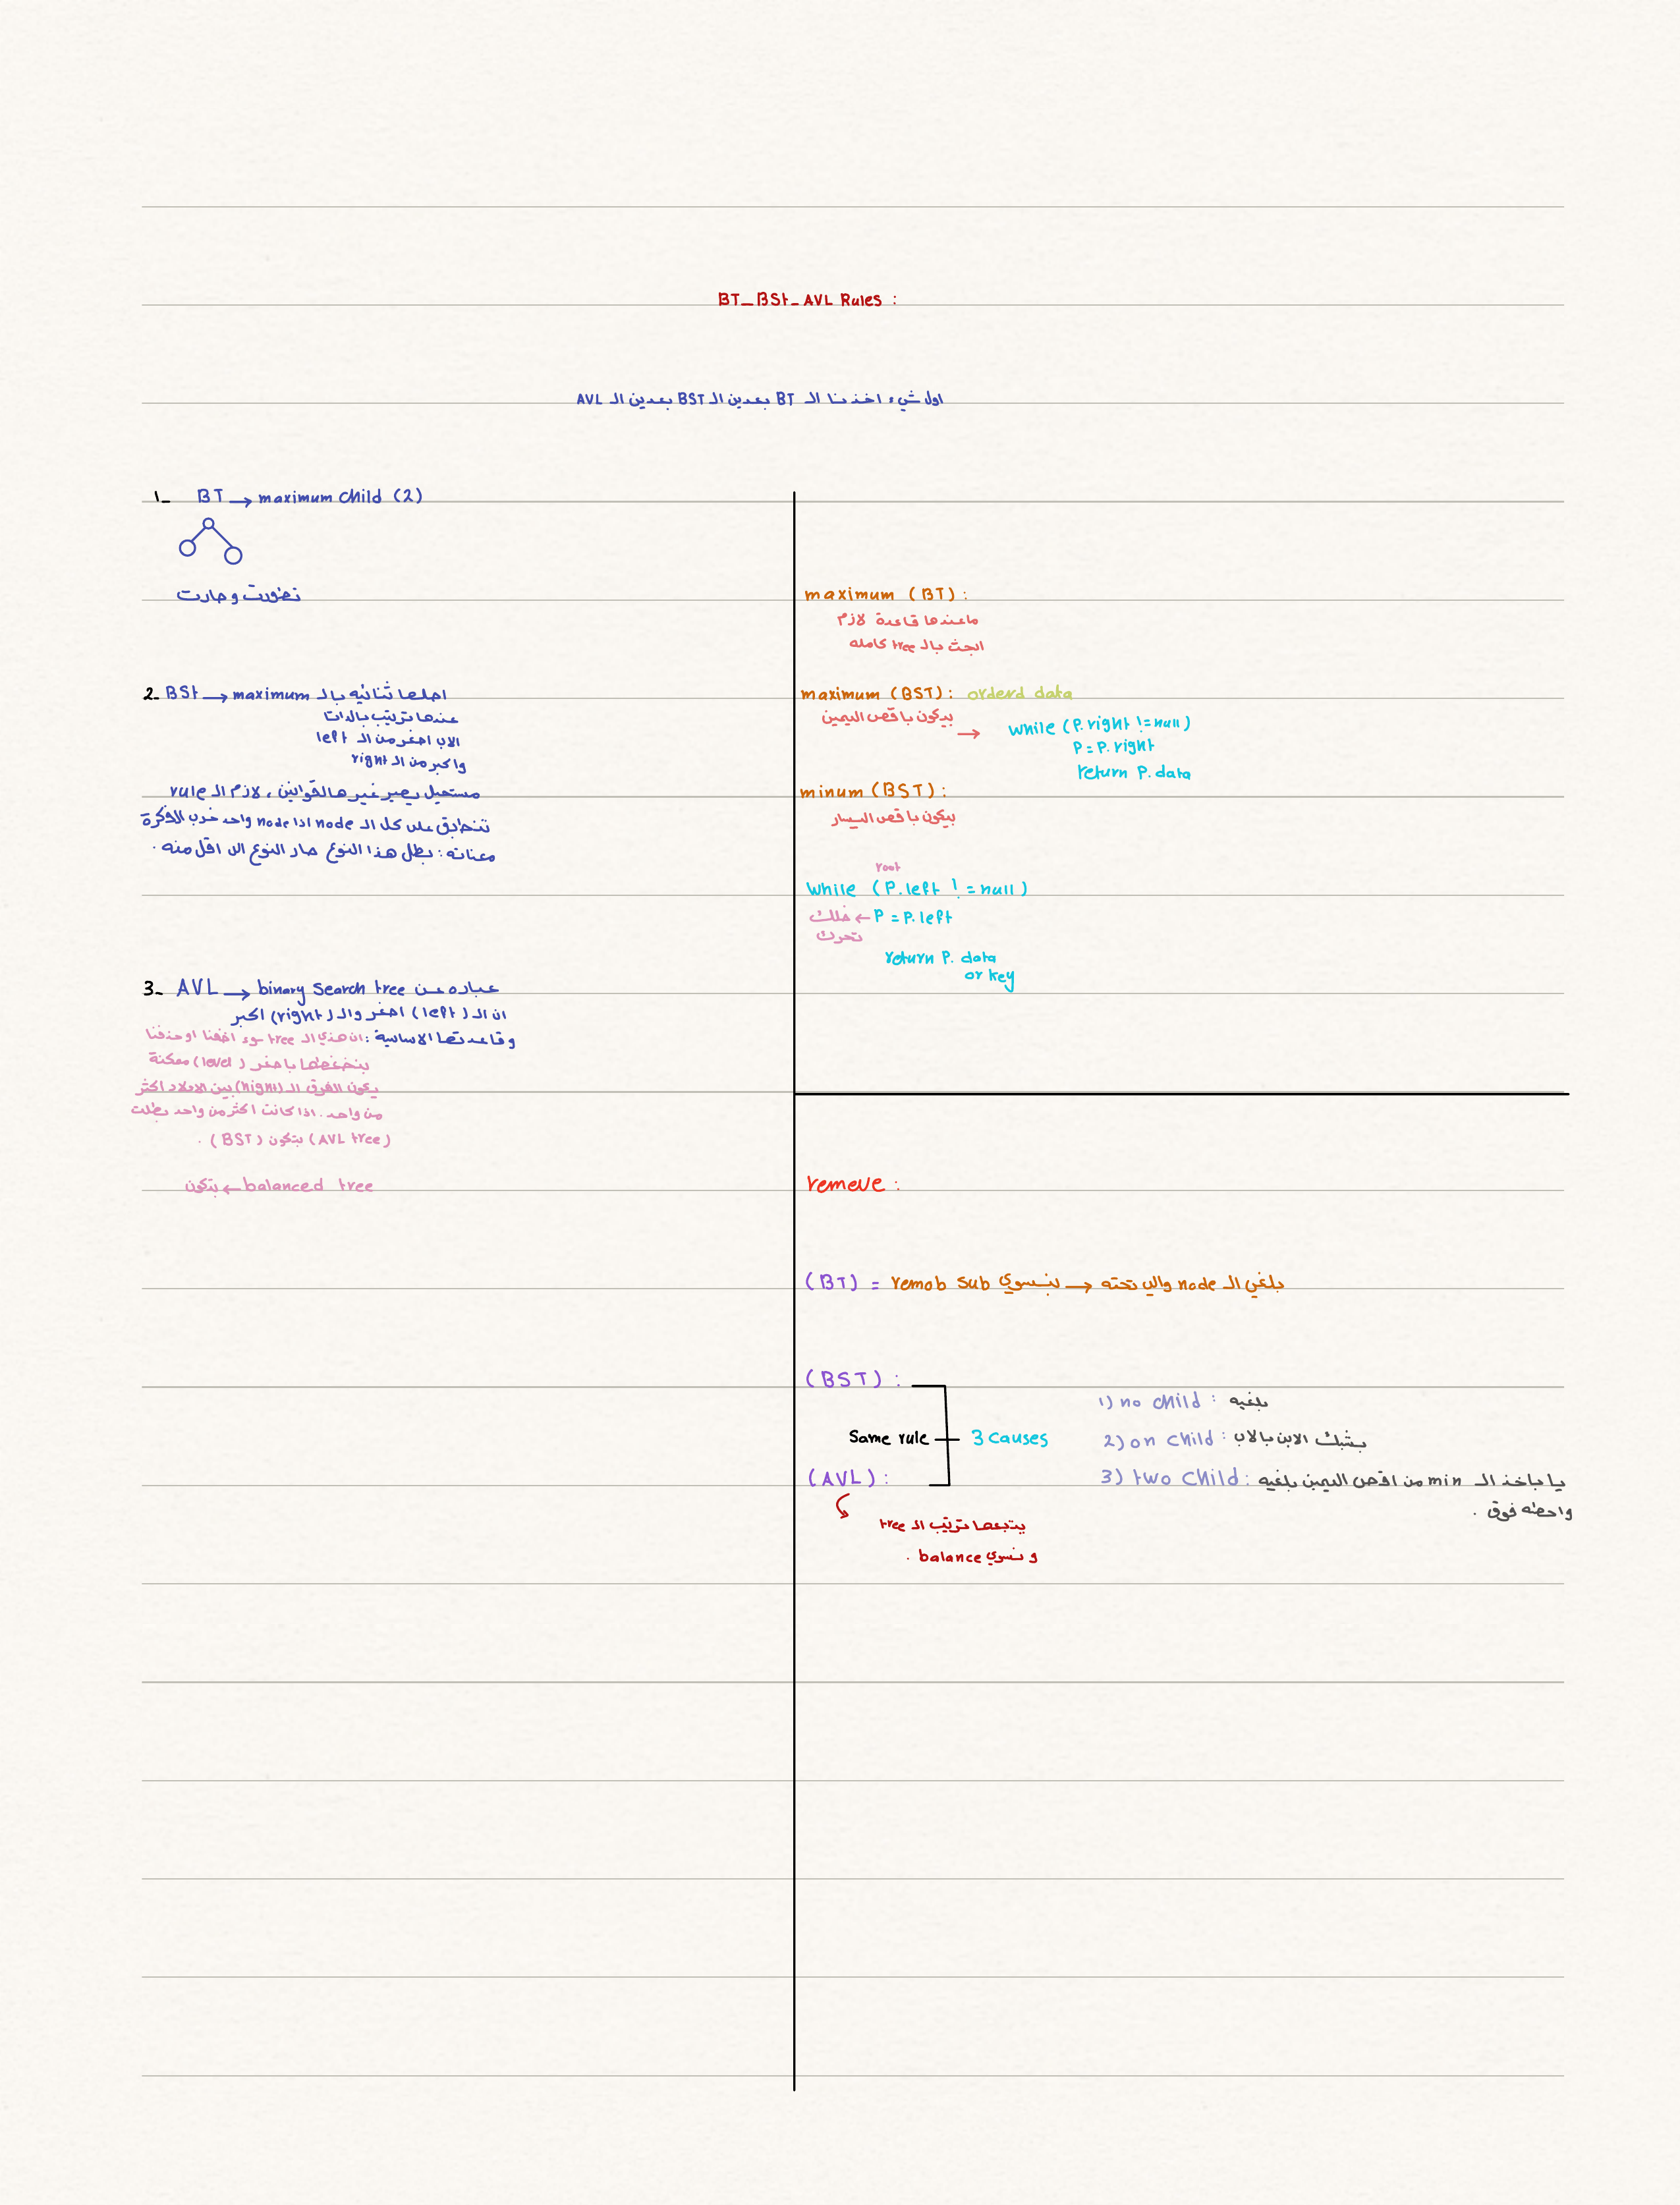 BT_BSt_AVL Rules :
اول شيء اخذنا الـ BT بعدين الـ BST بعدين الـ AVL
1_ BT → maximum child (2)
تطورت وصارت
2_ BSt → maximum اصلها ثنائيه بالـ
عندها ترتيب بالداتا
الاب اصغر من الـ left
واكبر من الـ right
مستحيل يصير غير هالقوانين ، لازم الـ rule
تنطبق على كل الـ node اذا node واحد خرب الفكرة
معناته : بطل هذا النوع صار النوع الي اقل منه .
3_ AVL → binary search tree عباره عن
ان الـ (left) اصغر والـ (right) اكبر
وقاعدتها الاساسية : ان هذي الـ tree سوء اضفنا او حذفنا
بنضغطها باصغر (level) ممكنة
يكون الفرق الـ (hight) بين الاولاد اكثر
من واحد . اذا كانت اكثر من واحد بطلت
(AVL tree) بتكون (BST) .
بتكون ← balanced tree
maximum (BT) :
ماعندها قاعدة لازم
ابحث بالـ tree كامله
maximum (BST) : orderd data
بيكون باقصى اليمين → while (P.right != null)
P = P.right
return P.data
minum (BST) :
بيكون باقصى اليسار
root
while (P.left != null)
خلك ← P = P.left
تحرك
return P. data
or key
remeve :
(BT) = remob sub بنسوي → بلغي الـ node والي تحته
(BST) :
1) no child : بلغيه
Same rule 3 causes
2) on child : بشبك الابن بالاب
(AVL) :
3) two child : يا باخذ الـ min من اقصى اليمين بلغيه
واحطه فوق .
يتبعها ترتيب الـ tree
و نسوي balance .